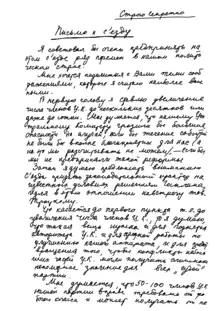 Строго секретно
Письмо к съезду
Я советовал бы очень предпринять на
этом съезде ряд перемен в нашем полити-
ческом строе.
Мне хочется поделиться с Вами теми сооб-
ражениями, которые я считаю наиболее важ-
ными.
В первую голову я ставлю увеличение
числа членов Ц.К. до нескольких десятков или
даже до сотни. Мне думается, что нашему Цен-
тральному Комитету грозили бы большие
опасности
бы не предприняли такой реформы.
Затем я думаю предложить вниманию
Съезда придать законодательный характер на
известных условиях решениям Госплана,
идя в этом отношении навстречу тов.
Троцкому.
Что касается до первого пункта, т.е. до
увеличения числа членов Ц.К., то я думаю,
что такая вещь нужна и для поднятия
авторитета Ц.К. и для серьезной работы по
улучшению нашего аппарата, и для
того, чтобы конфликты
частей Ц.К. могли получить слишком
непомерное значение для всех судеб
партии.
Мне думается, что 50-100 членов Ц.К.
наша партия вправе требовать от ра-
бочего класса и может получить от не-